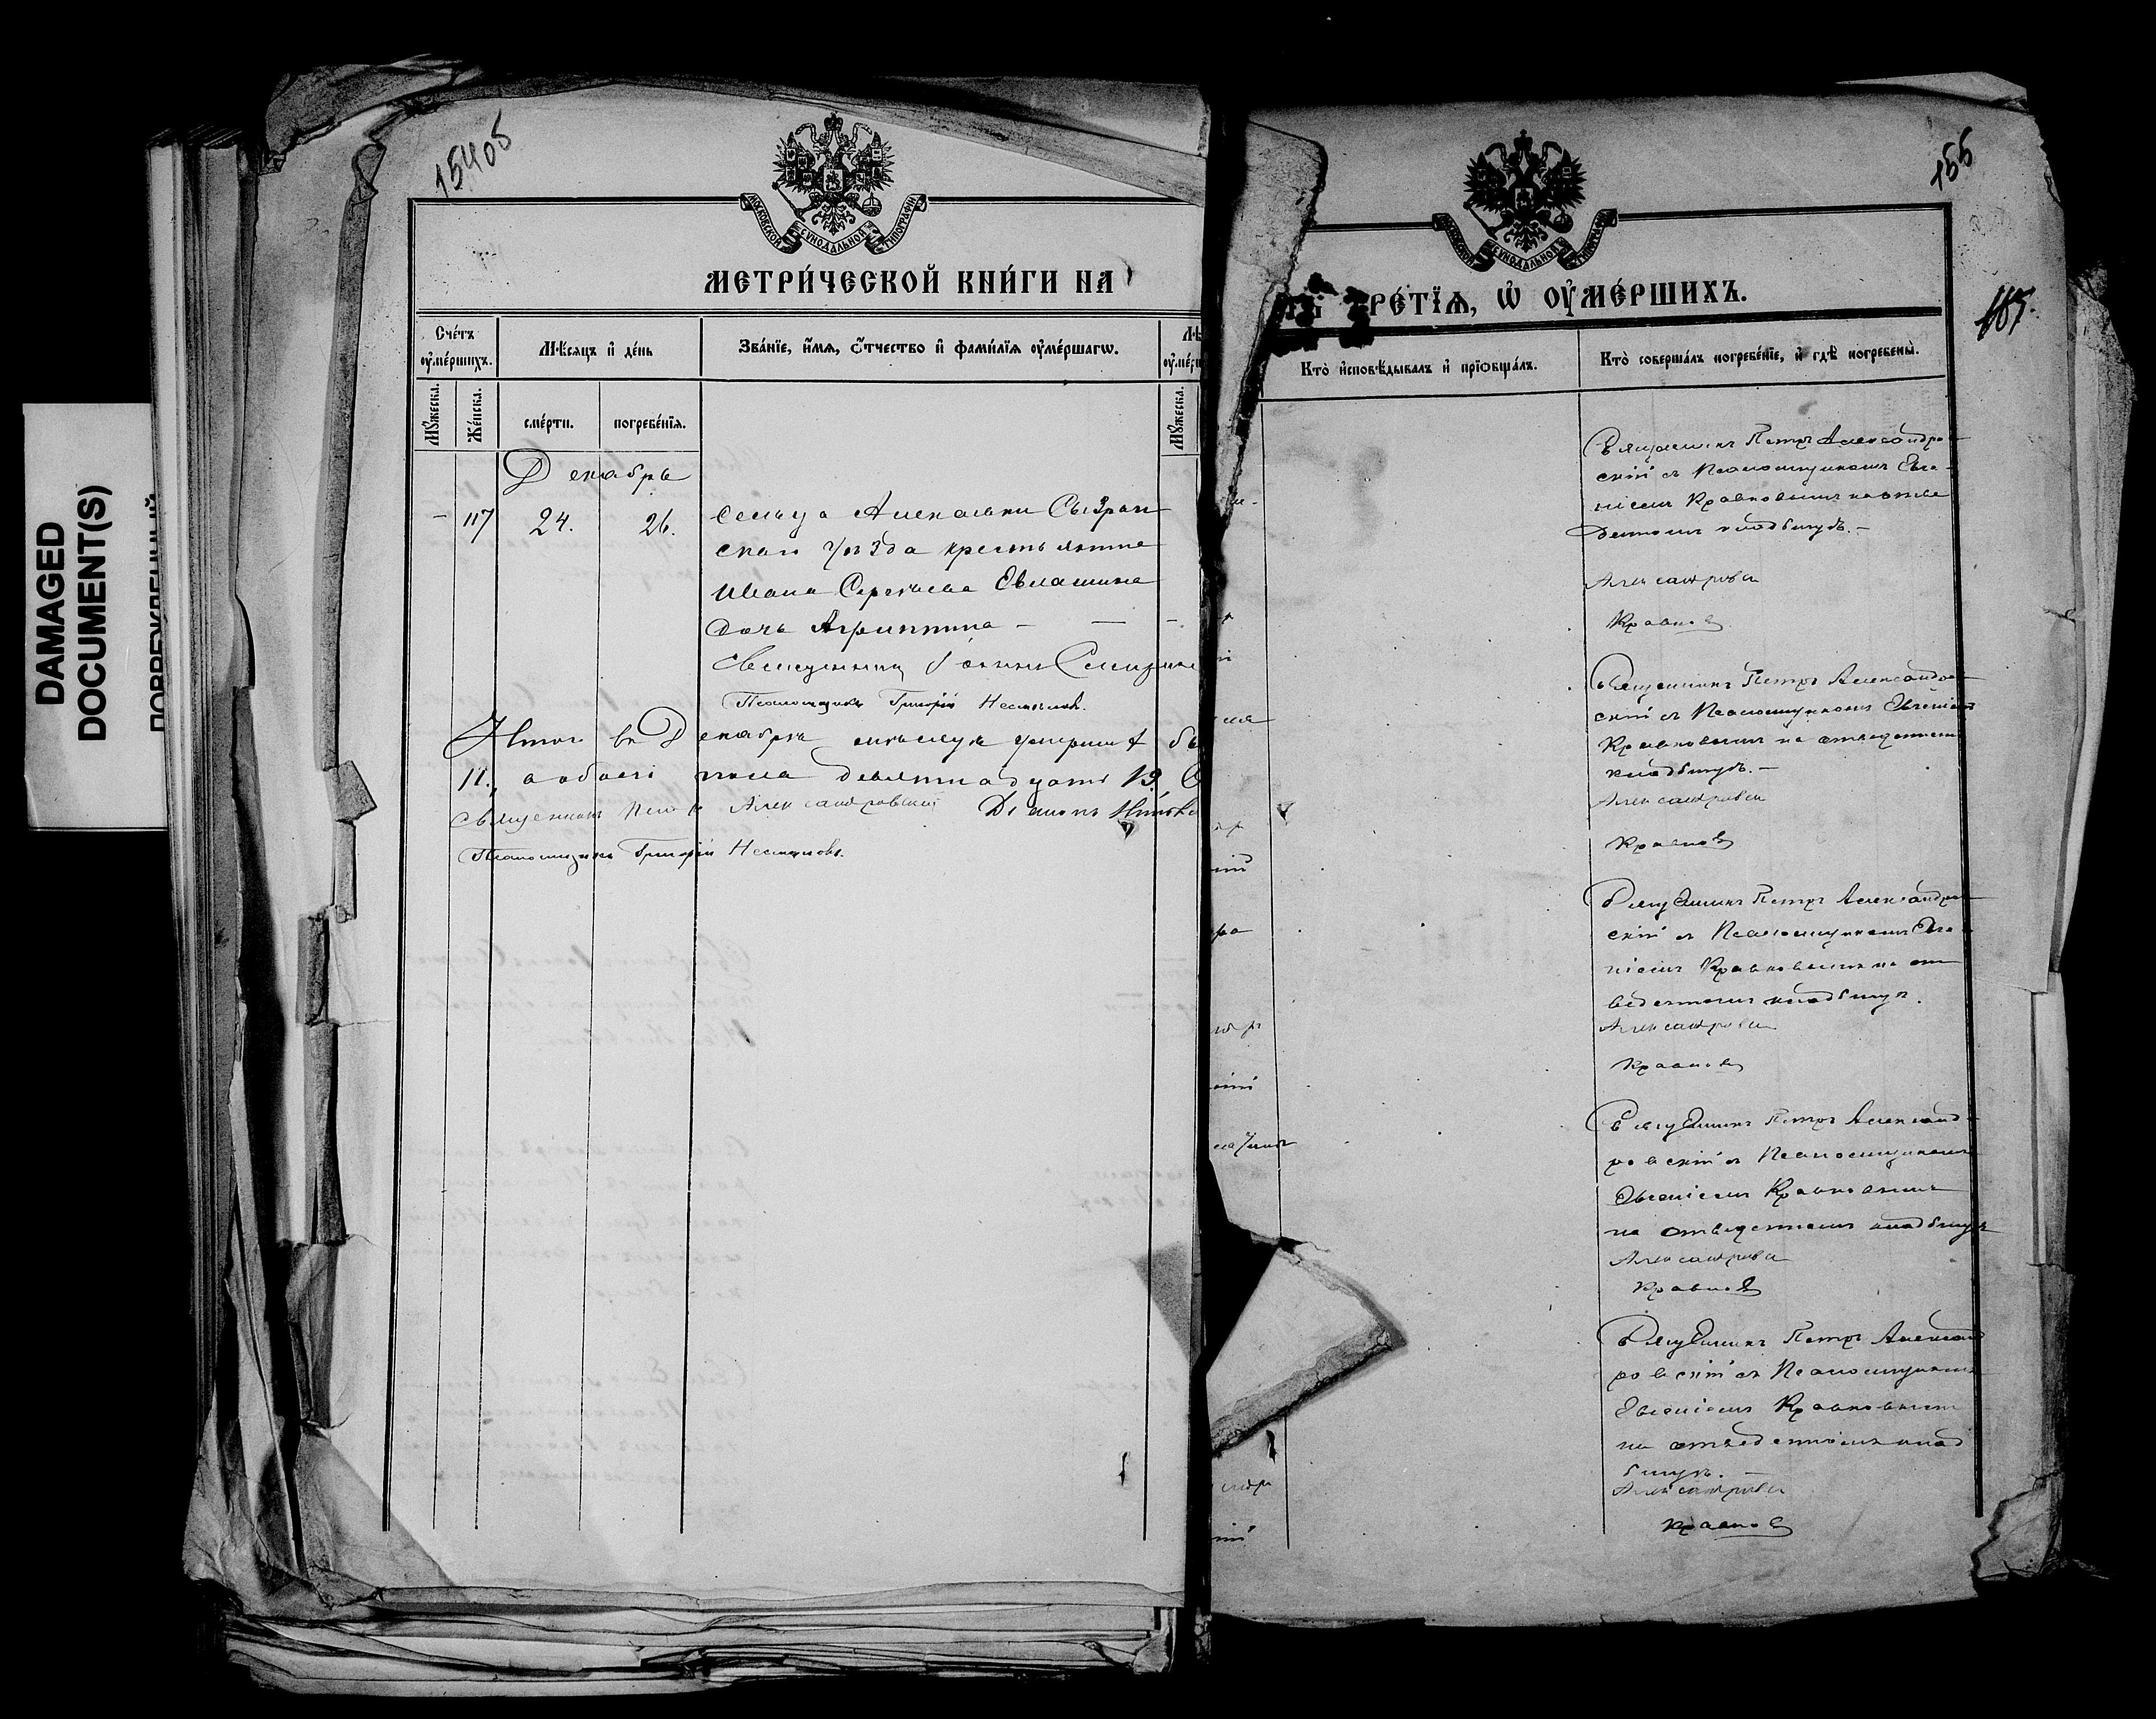 DAMAGED
DOCUMENT(S)
ПОВРЕЖДЕННЫЙ
154об
МОСКОВСКОЙ СѴНОДАЛЬНОЙ ТИПОГРАФІИ
МЕТРИ́ЧЕСКОЙ КНИ́ГИ НА
Сче́тъ ᲂу҆ме́ршихъ.
Мѣ́сяцъ и҆ де́нь
Зва́нїе, и҆́мя, ѻ҆́тчество и҆ фами́лїя ᲂу҆ме́ршагѡ.
Мꙋ́жеска.
Же́нска.
сме́рти.
погребе́нїя.
Мꙋ́жеска.
Декабрь
- 117 24. 26.
Сельца Сызран
скаго Уѣзда крестьянина
Ивана Сергѣева Евлашина
дочь Агриппина -
Священникъ Іоаннъ
Псаломщикъ Григорій
Итого въ Декабрѣ мѣсяцѣ умерших
11, а обоего пола девятнадцать 19.
Священникъ Петръ Александровскій Діаконъ
Псаломщикъ Григорій
155
МОСКОВСКОЙ СѴНОДАЛЬНОЙ ТИПОГРАФІИ
РЕ́ТЇѦ, Ѡ҆ ОУ҆МЕ́РШИХЪ.
Кто̀ и҆сповѣ́дывалъ и҆ прїѻбща́лъ.
Кто̀ соверша́лъ погребе́нїе, и҆ гдѣ̀ погребены̀.
Священникъ Петръ Александров
скій съ Псаломщикомъ Евге-
ніемъ Кравковымъ на отве
денномъ кладбищѣ. -
Александровскі
Кравковъ
Священникъ Петръ Александров
скій съ Псаломщикомъ Евгеніемъ
Кравковымъ на отведенномъ
кладбищѣ. -
Александровскі
Кравковъ
Священникъ Петръ Александров
скій съ Псаломщикомъ Евге
ніемъ Кравковымъ на от
веденномъ кладбищѣ.
Александровскі
Кравковъ
Священникъ Петръ Александ
ровскій съ Псаломщикомъ
Евгеніемъ Кравковымъ
на отведенномъ кладбищѣ
Александровскі
Кравковъ
Священникъ Петръ Александ
ровскій съ Псаломщикомъ
Евгеніемъ Кравковымъ
на отведенномъ клад
бищѣ. -
Александровскі
Кравковъ